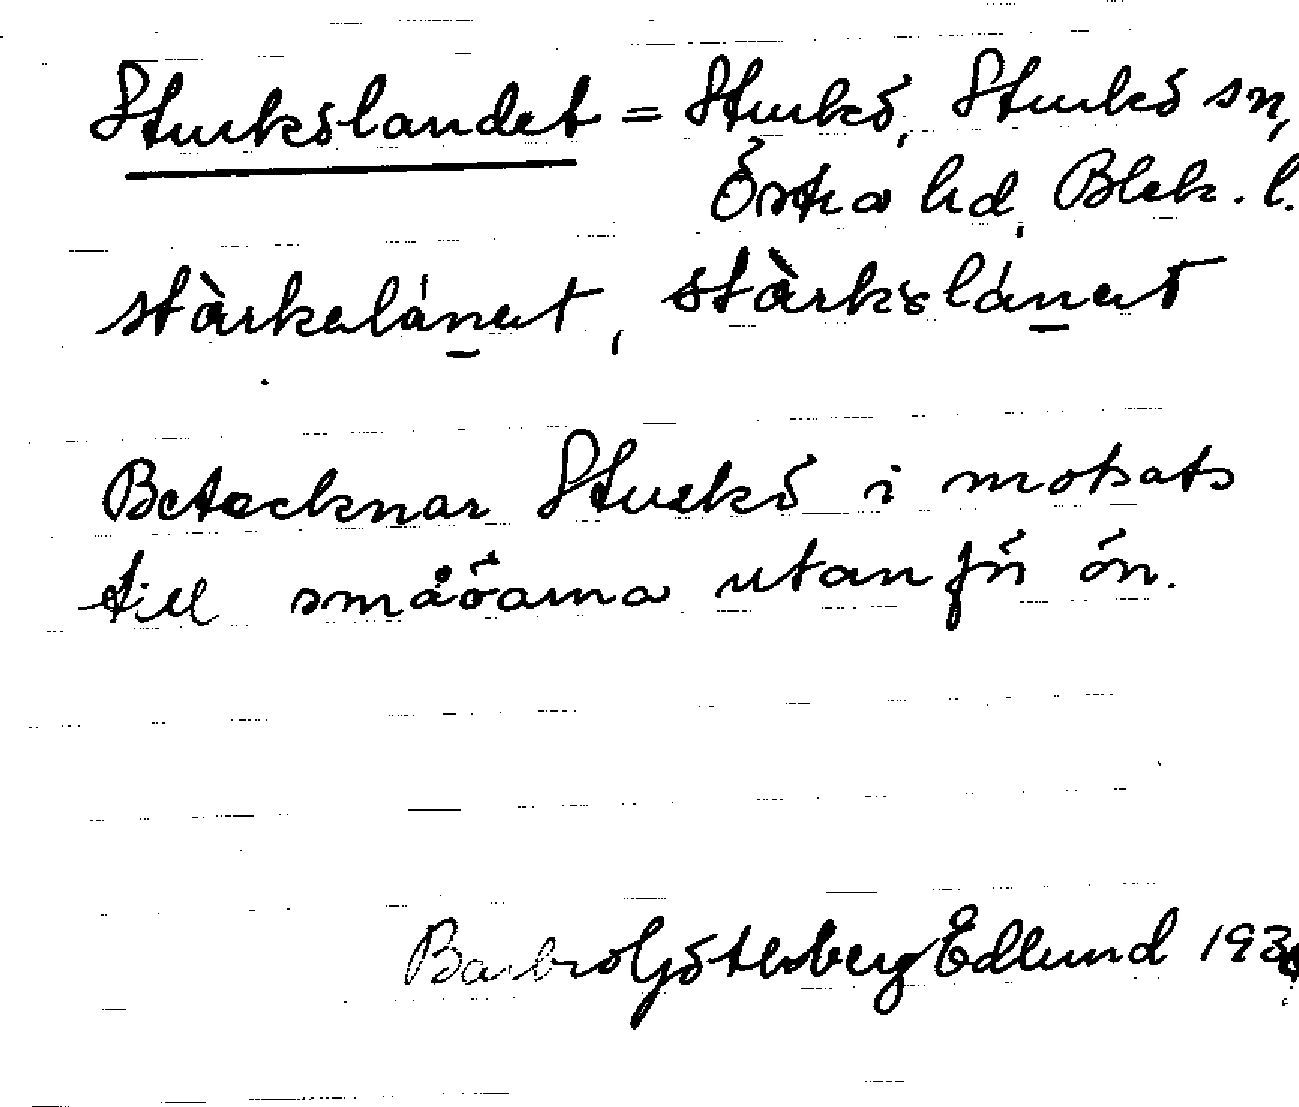 Sturkölandet = Sturkö, Sturkö sn,
Östra hd, Blek. l.
stàrkelánet, stàrkslánet
Betecknar Sturkö i motsats
till småöarna utanför ön.
Barbro Götlsberg Edlund